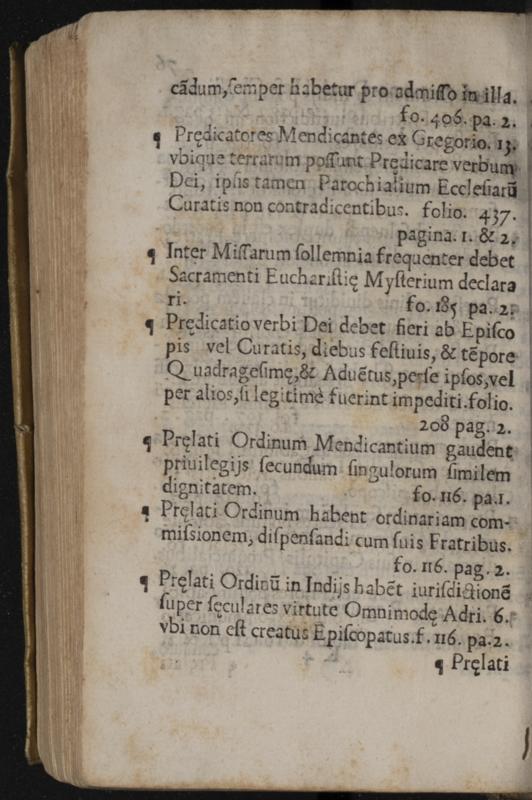 cãdum,ſemper habetur pro admiſſo in illa.
fo. 406. pa. 2.
¶ Prędicatores Mendicantes ex Gregorio. 13.
vbique terrarum poſſunt Prędicare verbum
Dei, ipſis tamen Parochialium Eccleſiarũ
Curatis non contradicentibus. folio. 437.
pagina. 1. & 2.
¶ Inter Miſſarum ſollemnia frequenter debet
Sacramenti Euchariſtię Myſterium declara
ri. fo. 185 pa. 2.
¶ Prędicatio verbi Dei debet fieri ab Epiſco
pis vel Curatis, diebus feſtiuis, & tẽpore
Quadrageſimę,& Aduẽtus,perſe ipſos,vel
per alios,ſi legitimè fuerint impediti.folio.
208 pag. 2.
¶ Pręlati Ordinum Mendicantium gaudent
priuilegijs ſecundum ſingulorum ſimilem
dignitatem. fo. 116. pa.1.
¶ Pręlati Ordinum habent ordinariam com-
miſsionem, diſpenſandi cum ſuis Fratribus.
fo. 116. pag. 2.
¶ Pręlati Ordinũ in Indijs habẽt iuriſdictionẽ
ſuper ſęculares virtute Omnimodę Adri. 6.
vbi non eſt creatus Epiſcopatus.f. 116. pa.2.
¶ Pręlati